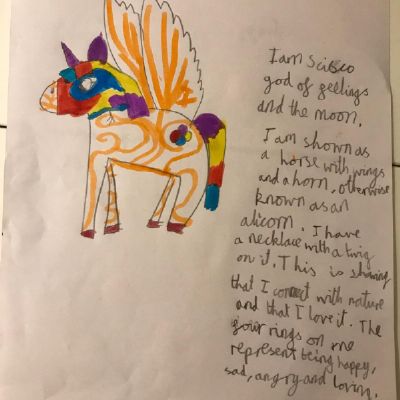 I am Scibco
god of feelings
and the moon.
I am shown as
a horse with wings
and a horn, otherwise
known as an
alicorn. I have
a necklace with a twig
on it. This is showing
that I connect with nature
and that I love it. The
four rings on me
represent being happy,
sad, angry and loving.